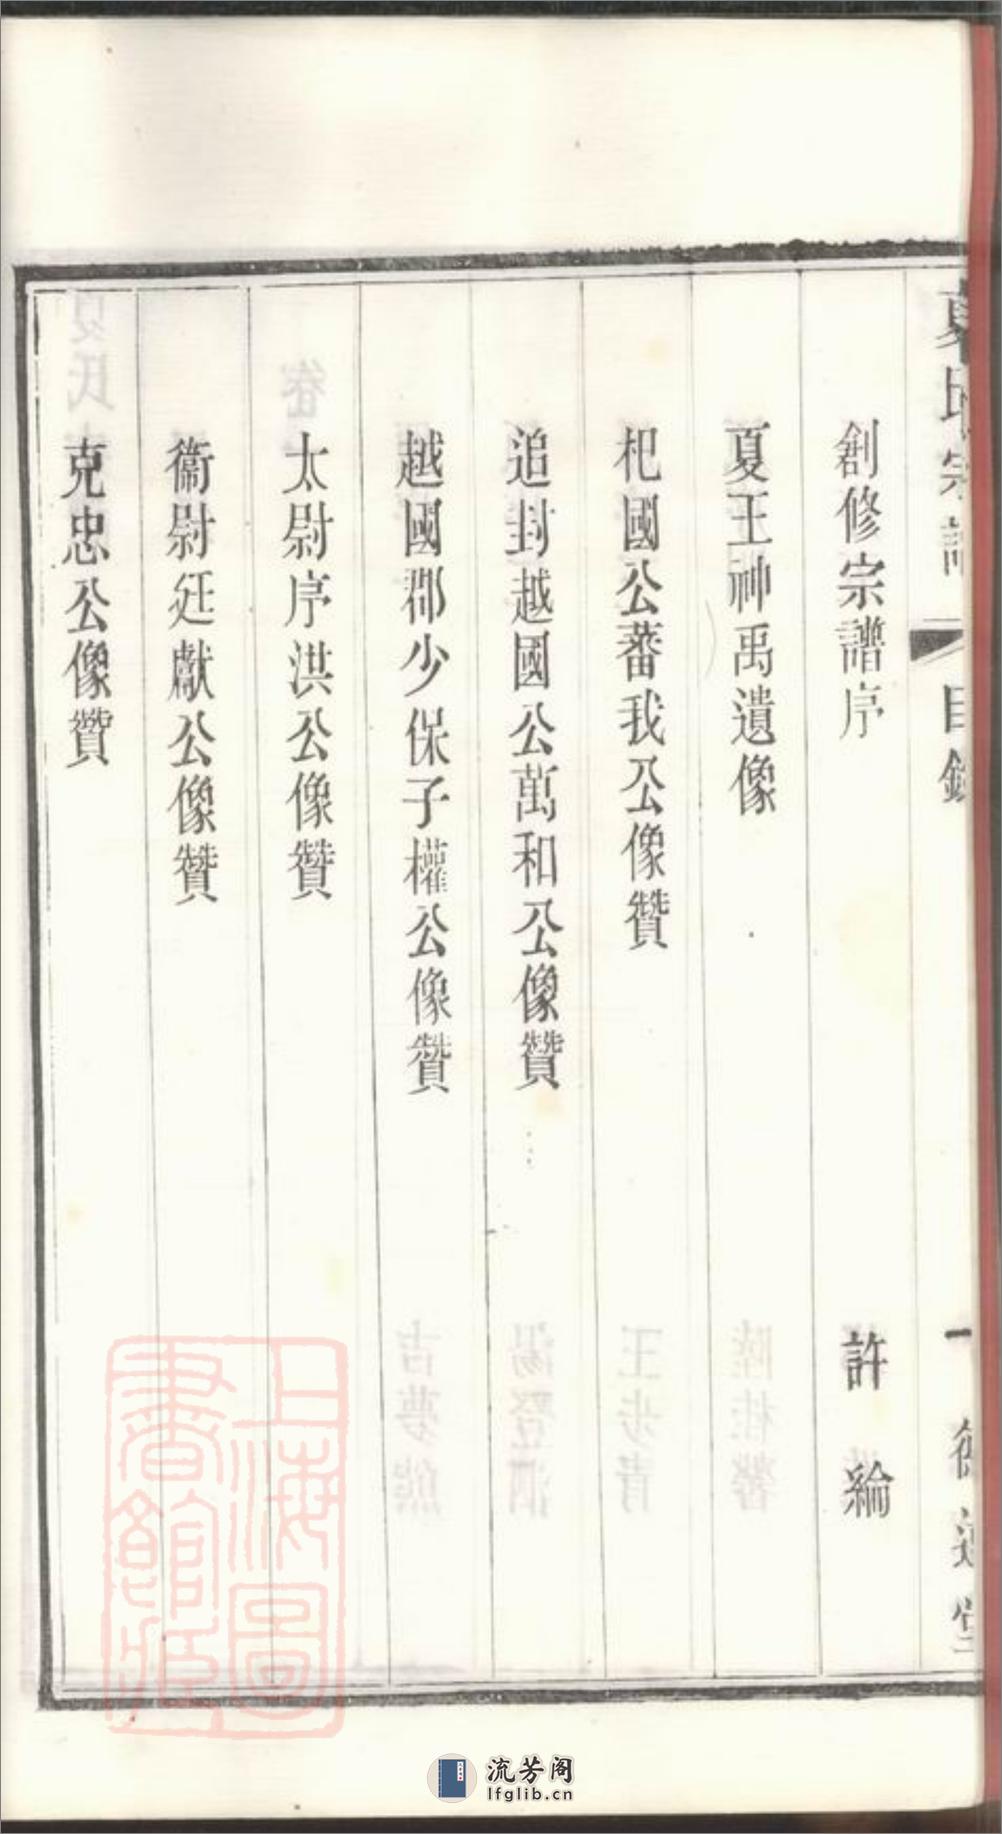 夏氏宗譜 目錄 一
創修宗譜序 許綸
夏王神禹遺像
杞國公蕃我公像贊
追封越國公萬和公像贊
越國郡少保子權公像贊
太尉序洪公像贊
衞尉延獻公像贊
克忠公像贊
上海圖書館藏
流芳阁
lfglib.cn